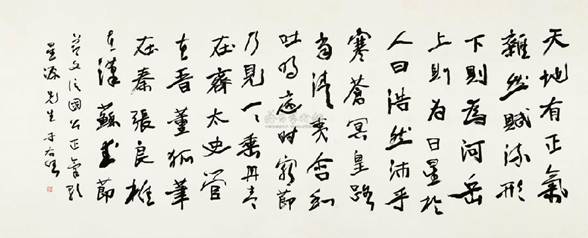 天地有正氣
雜然賦流形
下則為河岳
上則為日星於
人曰浩然沛乎
塞蒼冥皇路
當清夷含和
吐明庭時窮節
乃見一一垂丹青
在齊太史簡
在晉董狐筆
在秦張良椎
在漢蘇武節
文信國公正氣歌
源先生 于右任